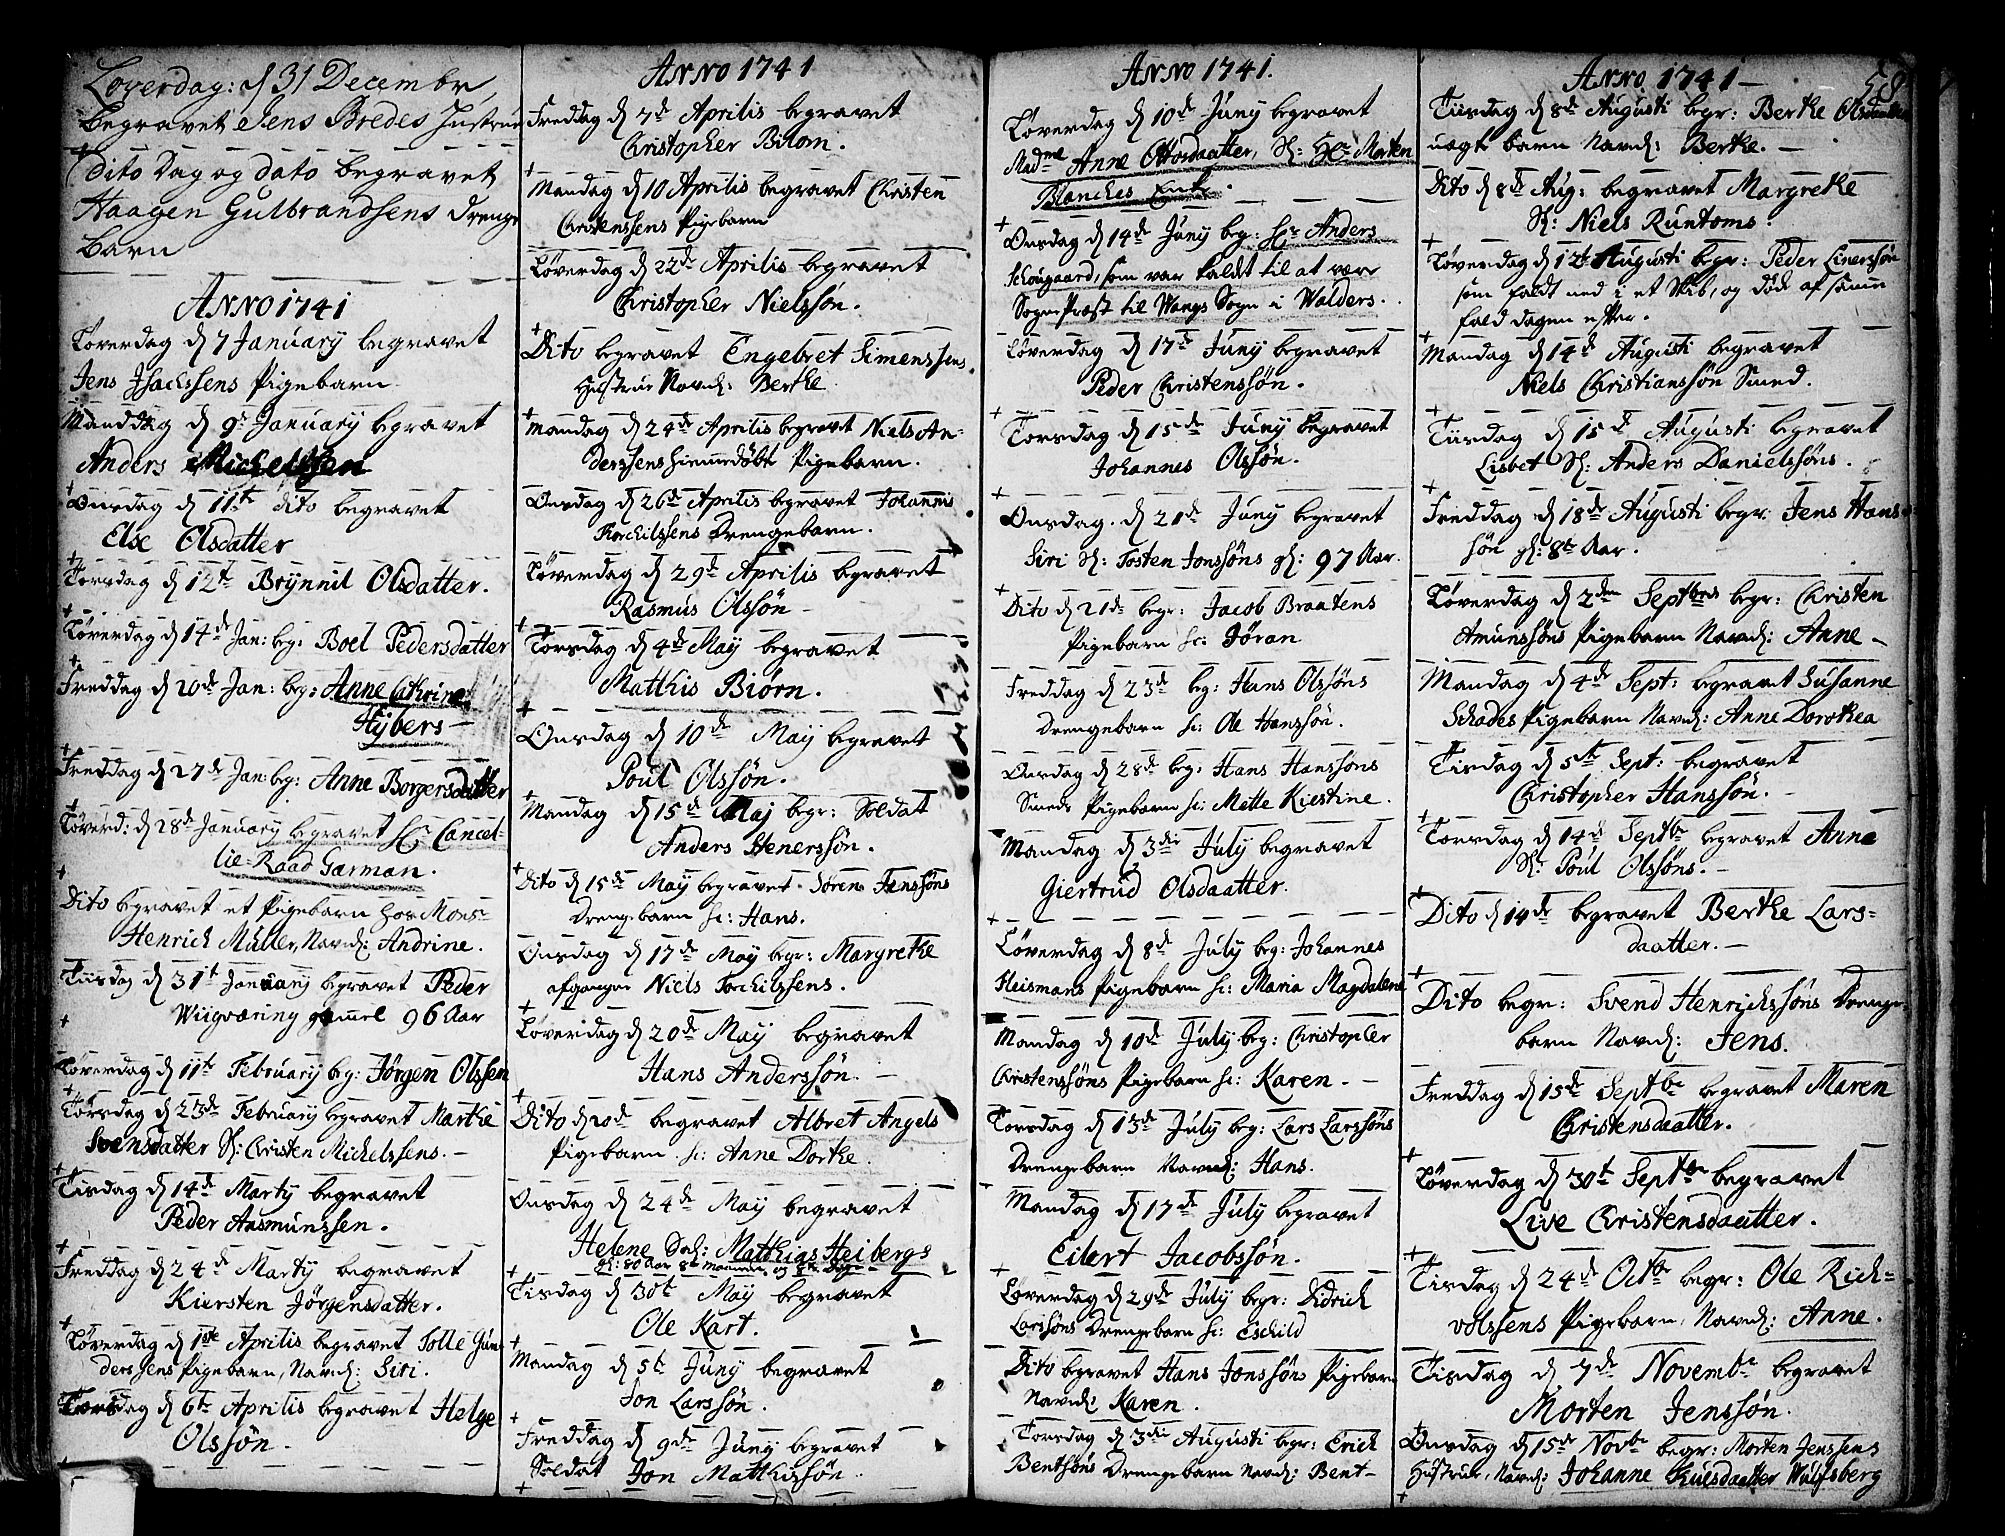 Løverdag: d 31 Decembr,
begravet Jens Bredes Hustrue
Dito Dag og dato begravet
Haagen Gulbrandsens drenge
barn
Anno 1741
Løverdag d 7 January begravet
Jens Isachsens Pigebarn
Manddag d 9de January begravet
Anders Michelssen
Onsdag d 11te dito begravet
Else Olsdatter
Torsdag d 12te Brynnil Olsdatter.
Løverdag d 14de Jan: beg. Boel Pedersdatter
Freddag d 20de Jan: beg: Anne Cathrine
Hybers
Freddag d 27de Jan: beg: Anne Borgersdatter
Løverd: d 28de January begravet Hr Cancel-
lie-Raad Garman.
Dito begravet et Pigebarn hos Monsr
Henrich Müller, Navnl: Andrine.
Tiisdag d 31te January begravet Peder
Wiigværing gammel 96 Aar
Løverdag d 11te February beg: Jørgen Olssen
Torsdag d 23de February begravet Marthe
Svensdatter S: Christen Michelssens.
Tisdag d 14de Marty begravet
Peder Aasmunssen.
Freddag d 24de Marty begravet
Kiersten Jørgensdatter.
Løverdag d 1ste Aprilis begravet Tolle Gun-
derssens Pigebarn, Navnl: Siri.
Torsdag d 6te Aprilis begravet Helge
Olssøn.
Anno 1741
Freddag d 7de Aprilis begravet
Christopher Bilom.
Mandag d 10 Aprilis begravet Christen
Christenssens Pigebarn
Løverdag d 22de Aprilis begravet
Christopher Nielssøn.
Dito begravet Engebret Simenssens
Hustrue Navnl: Berthe
Mandag d 24de Aprilis begravet Niels An-
derssens hiemmedøbt Pigebarn.
Onsdag d 26de Aprilis begravet Johannis
Torchilssens Drengebarn.
Løverdag d 29de Aprilis begravet
Rasmus Olssøn
Torsdag d 4de May begravet
Matthis Biørn.
Onsdag d 10de May begravet
Poul Olssøn.
Mandag d 15de Maj begr: Soldat
Anders Henerssøn.
Dito d 15de May begravet Sørens Jenssøns
Drengebarn h: Hans.
Onsdag d 17de May begr: Margrethe
afgangne Niels Torchilssens.
Løverdag d 20de May begravet
Hans Anderssøn.
Dito d 20de begravet Albret Angels
Pigebarn h: Anne Dorthe
Onsdag d 24de May begravet
Helene Sal: Matthias Heibergs
gl: 80 Aar 8te Maaneder og 8te Dage
Tisdag d 30te May begravet
Ole Kart.
Mandag d 5te Juny begravet
Jon Larssøn.
Freddag d 9de Juny begravet
Soldat Jon Matthissøn
Anno 1741.
Løverdag d 10de Juny begravet
Madme Anne Ottosdaatter, S: Hr Morten
Blanches Enke.
Onsdag d 14de Juny beg: Hr Anders
Schougaard, som var kaldt til at være
Sogne Præst til Wangs Sogn i Walders.
Løverdag d 17de Juny begravet
Peder Christenssøn.
Torsdag d 15de Juny begravet
Johannes Olssøn.
Onsdag. d 21de Juny begravet
Siri S: Tosten Jonssøns gl: 97 Aar.
Dito d 21de begr: Jacob Braatens
Pigebarn h: Jøran
Freddag d 23de beg: Hans Olssøns
Drengebarn h: Ole Hanssøn.
Onsdag d 28de beg: Hans Hanssøns
Smeds Pigebarn h: Mette Kiestine.
Mandag d 3die July begravet
Giertrud Olsdaatter.
Løverdag d 8de July beg: Johannes
Heismans Pigebarn h: Maria Magdalene
Mandag d 10de July beg: Christopher
Christenssøns Pigebarn h: Karen.
Torsdag d 13de July beg: Lars Larssøns
Drengebarn Navnl: Hans.
Mandag d 17de July begravet
Eilert Jacobssøn.
Løverdag d 29de July begr: Didrich
Larssøns Drengebarn h: Eschild
Dito begravet Hans Jonssøns Pigebarn
Navnl: Karen.
Torsdag d 3die Augusti begr: Erich
Bentsøns Drengebarn Navnl: Bent
Anno 1741
58
Tiisdag d 8de Augusti begr: Berthe Olsdaatters
uægte barn Navnl: Berthe.
Dito d 8de Aug: begravet Margrethe
S: Niels Runtoms.
Løverdag d 12te Augusti begr: Peder Einerssøn
som faldt ned i et Skib, og døde af samme
fald dagen efter.
Mandag d 14de Augusti begravet
Niels Christianssøn Smed.
Tiisdag d 15de Augusti begravet
Lisbet S: Anders Danielssøns.
Freddag d 18de Augusti begr. Jens Hans-
søn gl: 8te Aar.
Løverdag d 2den Septbris begr: Christen
Amunssøns Pigebarn Navnl: Anne
Mandag d 4de Sept: begravet Susanne
Schades Pigebarn Navnl: Anne Dorothea
Tisdag d 5te Sept: begravet
Christopher Hanssøn.
Torsdag d 14de Septbr begravet Anne
S: Poul Olssøns.
Dito d 14de begravet Berthe Lars-
daatter.
Dito begr: Svend Henrichssøns Drenge-
barn Navnl: Jens.
Freddag d 15de Septbr begravet Maren
Christensdaatter.
Løverdag d 30te Septbr begravet
Live Christensdaatter.
Tisdag d 24de Octbr begr: Ole Rich-
volssens Pigebarn, Navnl: Anne.
Tisdag d 7de Novembr begravet
Morten Jenssøn.
Onsdag d 15de Novbr begr: Morten Jenssens
Hustrue, Navnl: Johanne Truelsdaatter Wulfsberg